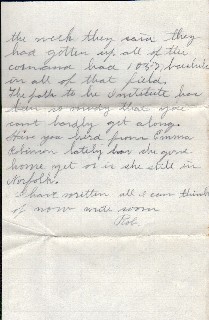 the week they said they
had gotten up all of the
command had 1037 bacteria
in all of that field.
The path to the Institute has
been so muddy that you
cant hardly get along.
Have you heard from Emma
Robinson lately has she gone
home yet or is she still in
Norfolk.
I have written all I can think
of now write soon
Rob